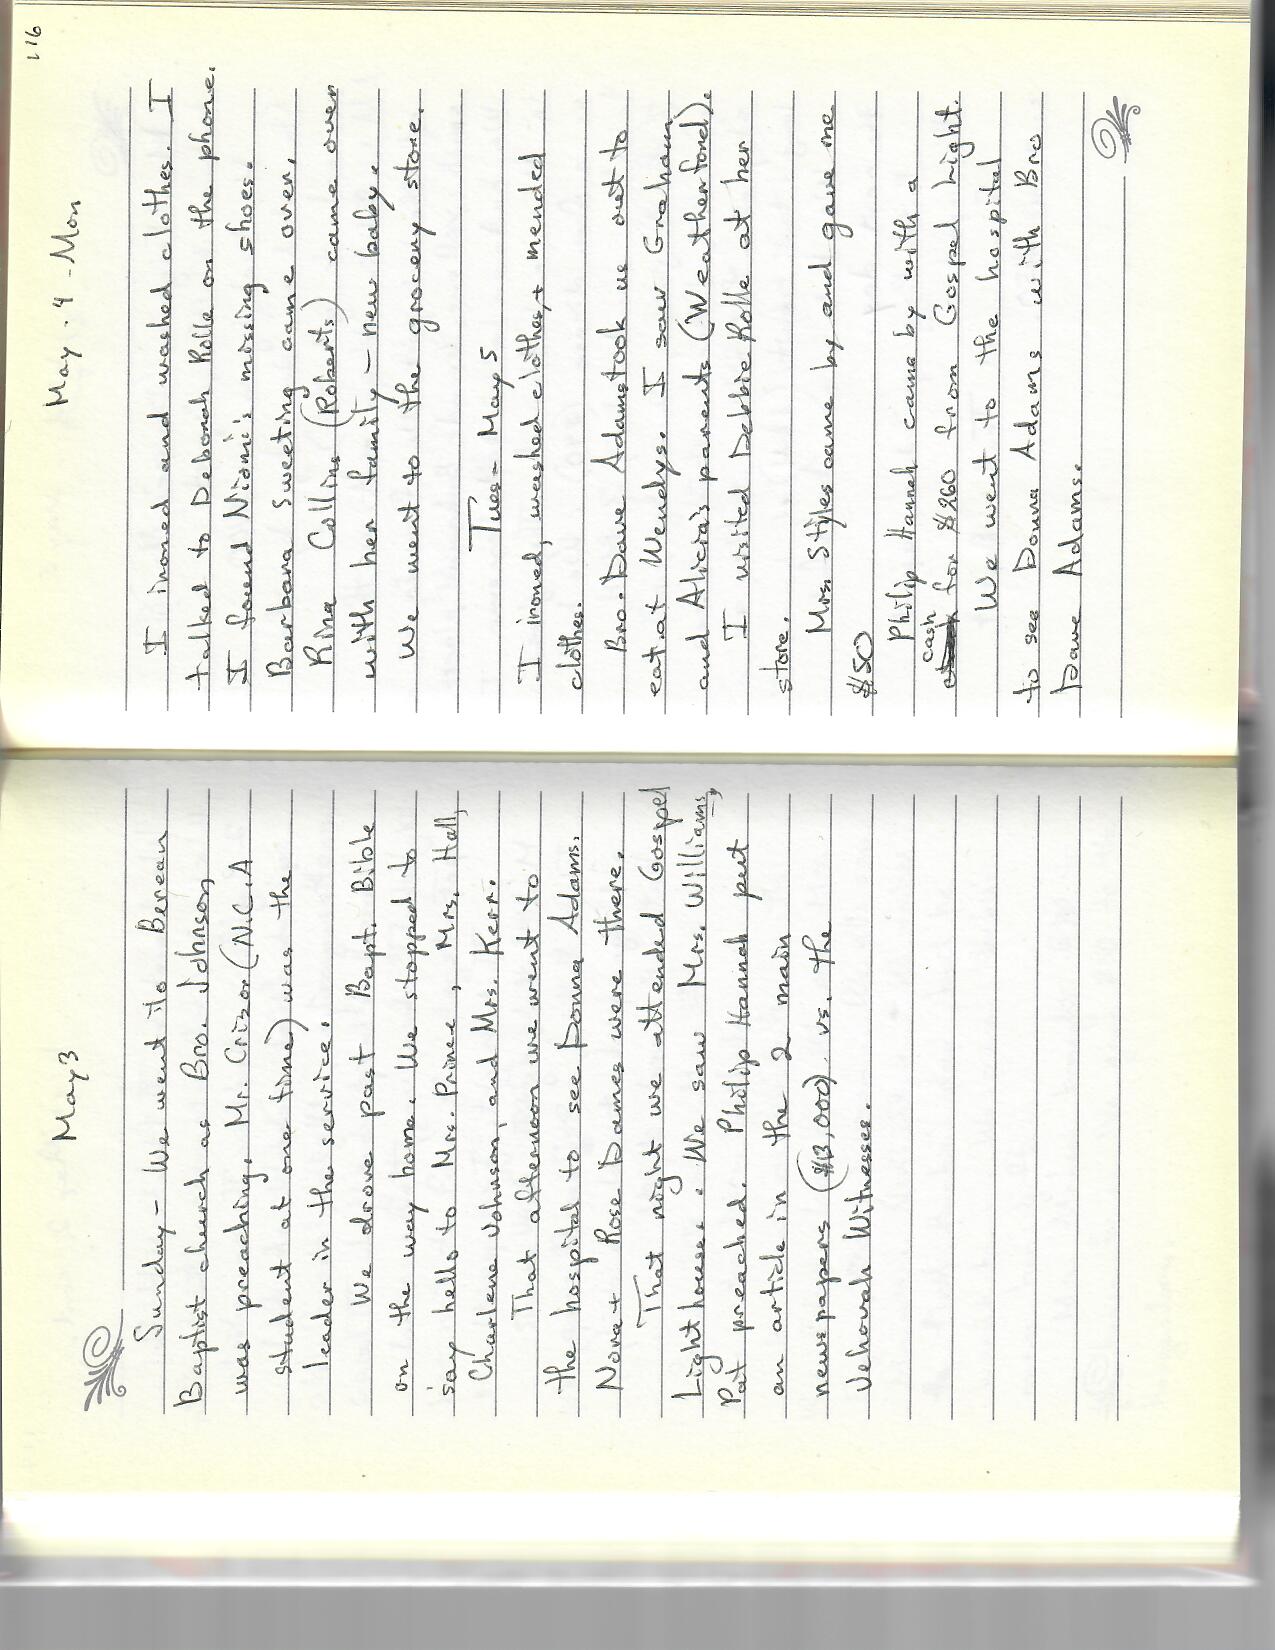 May 3
Sunday - We went to Berean
Baptist church as Bro. Johnson
was preaching. Mr. Crizor (N.C.A
student at one time) was the
leader in the service.
We drove past Bapt. Bible
on the way home. We stopped to
say hello to Mrs. Prince, Mrs. Hall,
Charlene Johnson, and Mrs. Kerr.
That afternoon we went to
the hospital to see Donna Adams.
Nora + Rose Dames were there.
That night we attended Gospel
Lighthouse. We saw Mrs. Williams,
Pat preached. Philip Hannah put
an article in the 2 main
newspapers ($13,000) vs. the
Jehovah Witnesses.
116
May. 4 - Mon
I ironed and washed clothes. I
talked to Deborah Rolle on the phone.
I found Niomi's missing shoes.
Barbara Sweeting came over.
Rina Collins (Roberts) came over
with her family - new baby.
We went to the grocery store.
Tues - May 5
I ironed, washed clothes, + mended
clothes.
Bro. Dave Adams took us out to
eat at Wendys. I saw Graham
and Alicia's parents (Weatherford).
I visited Debbie Rolle at her
store.
Mrs. Styles came by and gave me
$50
Philip Hannah came by with a
cash for $260 from Gospel Light.
We went to the hospital
to see Donna Adams with Bro
Dave Adams.